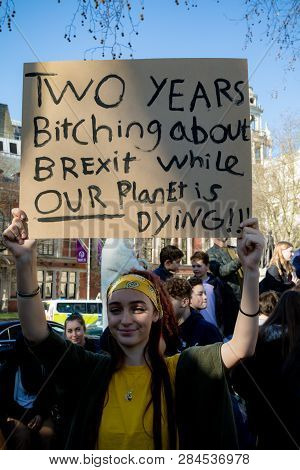 TWO YEARS
Bitching about
BREXIT while
OUR PlanEt is
DYING!!!
284536978